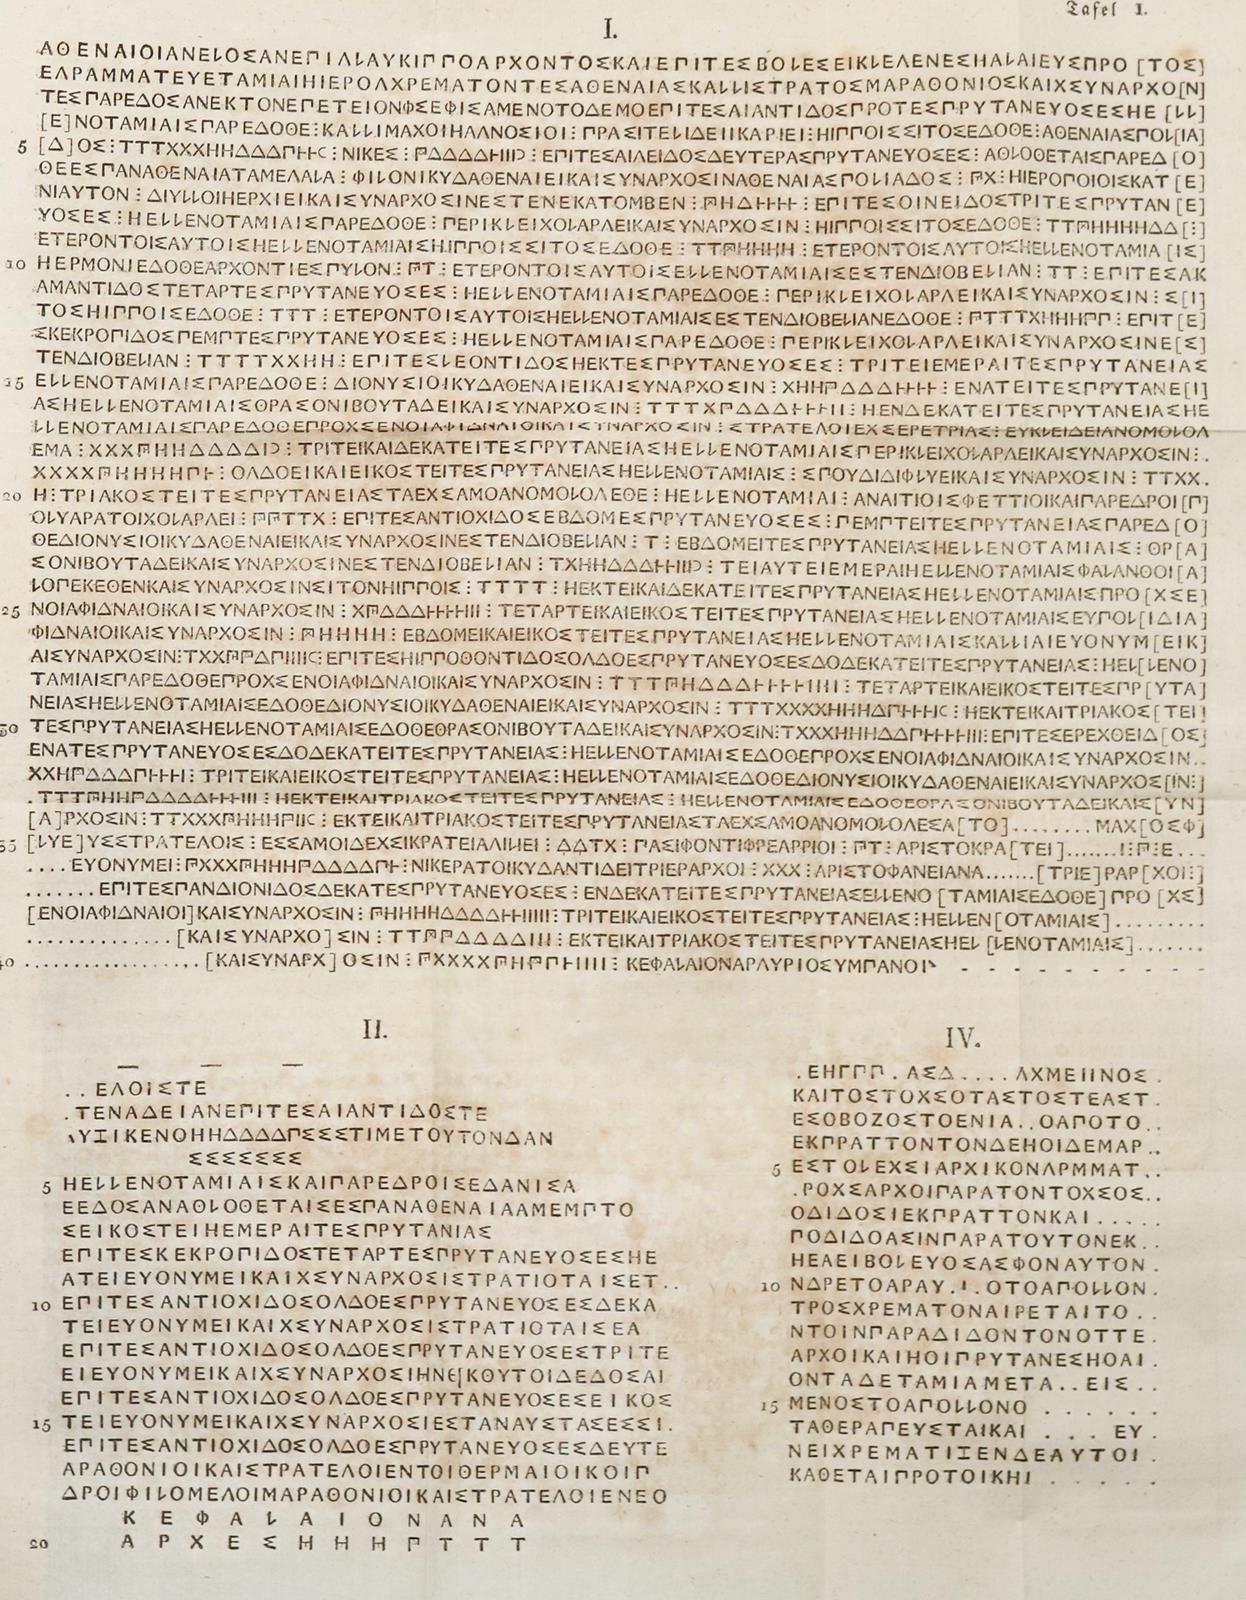 Tafel I.
I.
ΑΘΕΝΑΙΟΙΑΝΕΙΟΣΑΝΕΠΙΛΙΑΥΚΙΠΠΟΑΡΧΟΝΤΟΣΚΑΙΕΠΙΤΕΣΒΟΙΕΣΕΙΚΙΕΛΕΝΕΣΗΑΙΑΙΕΥΣΠΡΟ [ΤΟΣ]
ΕΛΡΑΜΜΑΤΕΥΕΤΑΜΙΑΙΗΙΕΡΟΛΧΡΕΜΑΤΟΝΤΕΣΑΘΕΝΑΙΑΣΚΑΙΙΙΣΤΡΑΤΟΣΜΑΡΑΘΟΝΙΟΣΚΑΙΧΣΥΝΑΡΧΟ[Ν]
ΤΕΣΠΑΡΕΔΟΣΑΝΕΚΤΟΝΕΠΕΤΕΙΟΝΦΣΕΦΙΣΑΜΕΝΟΤΟΔΕΜΟΕΠΙΤΕΣΑΙΑΝΤΙΔΟΣΠΡΟΤΕΣΠΡΥΤΑΝΕΥΟΣΕΣΗΕ [ΙΙ]
[Ε]ΝΟΤΑΜΙΑΙΣΠΑΡΕΔΟΘΕ⁝ΚΑΙΙΙΜΑΧΟΙΗΑΛΝΟΣΙΟΙ⁝ΠΡΑΣΙΤΕΙΙΔΕΙΙΚΑΡΙΕΙ⁝ΗΙΠΠΟΙΣΣΙΤΟΣΕΔΟΘΕ⁝ΑΘΕΝΑΙΑΣΠΟΙ[ΙΑ]
5 [Δ]ΟΣ⁝ΤΤΤΧΧΧΗΗΔΔΔΠͰͰϹ⁝ΝΙΚΕΣ⁝𐅄ΔΔΔΔͰΙΙϽ⁝ΕΠΙΤΕΣΑΙΛΕΙΔΟΣΔΕΥΤΕΡΑΣΠΡΥΤΑΝΕΥΟΣΕΣ⁝ΑΘΙΟΘΕΤΑΙΣΠΑΡΕΔ[Ο]
ΘΕΕΣΠΑΝΑΘΕΝΑΙΑΤΑΜΕΛΑΙΑ⁝ΦΙΙΟΝΙΚΥΔΑΘΕΝΑΙΕΙΚΑΙΣΥΝΑΡΧΟΣΙΝΑΘΕΝΑΙΑΣΠΟΙΙΑΔΟΣ⁝𐅆Χ⁝ΗΙΕΡΟΠΟΙΟΙΣΚΑΤ[Ε]
ΝΙΑΥΤΟΝ⁝ΔΙΥΙΙΟΙΗΕΡΧΙΕΙΚΑΙΣΥΝΑΡΧΟΣΙΝΕΣΤΕΝΕΚΑΤΟΜΒΕΝ⁝𐅆ΗΔͰͰͰͰ⁝ΕΠΙΤΕΣΟΙΝΕΙΔΟΣΤΡΙΤΕΣΠΡΥΤΑΝ[Ε]
ΥΟΣΕΣ⁝ΗΕΙΙΕΝΟΤΑΜΙΑΙΣΠΑΡΕΔΟΘΕ⁝ΠΕΡΙΚΙΕΙΧΟΙΑΡΛΕΙΚΑΙΣΥΝΑΡΧΟΣΙΝ⁝ΗΙΠΠΟΙΣΣΙΤΟΣΕΔΟΘΕ⁝ΤΤ𐅅ΗΗΗΗΔΔ[⁝]
ΕΤΕΡΟΝΤΟΙΣΑΥΤΟΙΣΗΕΙΙΕΝΟΤΑΜΙΑΙΣΗΙΠΠΟΙΣΣΙΤΟΣΕΔΟΘΕ⁝ΤΤ𐅅ΗΗΗΗ⁝ΕΤΕΡΟΝΤΟΙΣΑΥΤΟΙΣΗΕΙΙΕΝΟΤΑΜΙΑ[ΙΣ]
10 ΗΕΡΜΟΝΙΕΔΟΘΕΑΡΧΟΝΤΙΕΣΠΥΙΟΝ⁝𐅈⁝ΕΤΕΡΟΝΤΟΙΣΑΥΤΟΙΣΕΙΙΕΝΟΤΑΜΙΑΙΣΕΣΤΕΝΔΙΟΒΕΙΙΑΝ⁝ΤΤ⁝ΕΠΙΤΕΣΑΚ
ΑΜΑΝΤΙΔΟΣΤΕΤΑΡΤΕΣΠΡΥΤΑΝΕΥΟΣΕΣ⁝ΗΕΙΙΕΝΟΤΑΜΙΑΙΣΠΑΡΕΔΟΘΕ⁝ΠΕΡΙΚΙΕΙΧΟΙΑΡΛΕΙΚΑΙΣΥΝΑΡΧΟΣΙΝ⁝Σ[Ι]
ΤΟΣΗΙΠΠΟΙΣΕΔΟΘΕ⁝ΤΤΤ⁝ΕΤΕΡΟΝΤΟΙΣΑΥΤΟΙΣΗΕΙΙΕΝΟΤΑΜΙΑΙΣΕΣΤΕΝΔΙΟΒΕΙΙΑΝΕΔΟΘΕ⁝𐅈ΤΤΤΧΗΗΗ𐅄Π⁝ΕΠΙΤ[Ε]
ΣΚΕΚΡΟΠΙΔΟΣΠΕΜΠΤΕΣΠΡΥΤΑΝΕΥΟΣΕΣ⁝ΗΕΙΙΕΝΟΤΑΜΙΑΙΣΠΑΡΕΔΟΘΕ⁝ΠΕΡΙΚΙΕΙΧΟΙΑΡΛΕΙΚΑΙΣΥΝΑΡΧΟΣΙΝΕ[Σ]
ΤΕΝΔΙΟΒΕΙΙΑΝ⁝ΤΤΤΤΧΧΗΗ⁝ΕΠΙΤΕΣΙΕΟΝΤΙΔΟΣΗΕΚΤΕΣΠΡΥΤΑΝΕΥΟΣΕΣ⁝ΤΡΙΤΕΙΕΜΕΡΑΙΤΕΣΠΡΥΤΑΝΕΙΑΣ
15 ΕΙΙΕΝΟΤΑΜΙΑΙΣΠΑΡΕΔΟΘΕ⁝ΔΙΟΝΥΣΙΟΙΚΥΔΑΘΕΝΑΙΕΙΚΑΙΣΥΝΑΡΧΟΣΙΝ⁝ΧΗΗ𐅄ΔΔΔͰͰͰͰ⁝ΕΝΑΤΕΙΤΕΣΠΡΥΤΑΝΕ[Ι]
ΑΣΗΕΙΙΕΝΟΤΑΜΙΑΙΣΘΡΑΣΟΝΙΒΟΥΤΑΔΕΙΚΑΙΣΥΝΑΡΧΟΣΙΝ⁝ΤΤΤΧ𐅄ΔΔΔͰͰΙΙ⁝ΗΕΝΔΕΚΑΤΕΙΤΕΣΠΡΥΤΑΝΕΙΑΣΗΕ
ΙΙΕΝΟΤΑΜΙΑΙΣΠΑΡΕΔΟΘΕΠΡΟΧΣΕΝΟΙΑΦΙΔΝΑΙΟΙΚΑΙΣΥΝΑΡΧΟΣΙΝ⁝ΣΤΡΑΤΕΛΟΙΕΧΣΕΡΕΤΡΙΑΣ⁝ΕΥΚΙΕΙΔΕΙΑΝΟΜΟΙΟΛ
ΕΜΑ⁝ΧΧΧ𐅅ΗΗΔΔΔΔΙϽ⁝ΤΡΙΤΕΙΚΑΙΔΕΚΑΤΕΙΤΕΣΠΡΥΤΑΝΕΙΑΣΗΕΙΙΕΝΟΤΑΜΙΑΙΣΠΕΡΙΚΙΕΙΧΟΙΑΡΛΕΙΚΑΙΣΥΝΑΡΧΟΣΙΝ⁝.
ΧΧΧΧ𐅅ΗΗΗΗΠͰ⁝ΟΛΔΟΕΙΚΑΙΕΙΚΟΣΤΕΙΤΕΣΠΡΥΤΑΝΕΙΑΣΗΕΙΙΕΝΟΤΑΜΙΑΙΣ⁝ΣΠΟΥΔΙΔΙΦΙΥΕΙΚΑΙΣΥΝΑΡΧΟΣΙΝ⁝ΤΤΧΧ.
20 Η⁝ΤΡΙΑΚΟΣΤΕΙΤΕΣΠΡΥΤΑΝΕΙΑΣΤΑΕΧΣΑΜΟΑΝΟΜΟΙΟΛΕΘΕ⁝ΗΕΙΙΕΝΟΤΑΜΙΑΙ⁝ΑΝΑΙΤΙΟΙΣΦΕΤΤΙΟΙΚΑΙΠΑΡΕΔΡΟΙ[Π]
ΟΙΥΑΡΑΤΟΙΧΟΙΑΡΛΕΙ⁝𐅆𐅈ΤΤΧ⁝ΕΠΙΤΕΣΑΝΤΙΟΧΙΔΟΣΕΒΔΟΜΕΣΠΡΥΤΑΝΕΥΟΣΕΣ⁝ΠΕΜΠΤΕΙΤΕΣΠΡΥΤΑΝΕΙΑΣΠΑΡΕΔ[Ο]
ΘΕΔΙΟΝΥΣΙΟΙΚΥΔΑΘΕΝΑΙΕΙΚΑΙΣΥΝΑΡΧΟΣΙΝΕΣΤΕΝΔΙΟΒΕΙΙΑΝ⁝Τ⁝ΕΒΔΟΜΕΙΤΕΣΠΡΥΤΑΝΕΙΑΣΗΕΙΙΕΝΟΤΑΜΙΑΙΣ⁝ΘΡ[Α]
ΣΟΝΙΒΟΥΤΑΔΕΙΚΑΙΣΥΝΑΡΧΟΣΙΝΕΣΤΕΝΔΙΟΒΕΙΙΑΝ⁝ΤΧΗΗΔΔΔͰͰΙΙϽ⁝ΤΕΙΑΥΤΕΙΕΜΕΡΑΙΗΕΙΙΕΝΟΤΑΜΙΑΙΣΦΑΙΑΝΘΟΙ[Α]
ΙΟΠΕΚΕΘΕΝΚΑΙΣΥΝΑΡΧΟΣΙΝΣΙΤΟΝΗΙΠΠΟΙΣ⁝ΤΤΤΤ⁝ΗΕΚΤΕΙΚΑΙΔΕΚΑΤΕΙΤΕΣΠΡΥΤΑΝΕΙΑΣΗΕΙΙΕΝΟΤΑΜΙΑΙΣΠΡΟ[ΧΣΕ]
25 ΝΟΙΑΦΙΔΝΑΙΟΙΚΑΙΣΥΝΑΡΧΟΣΙΝ⁝Χ𐅄ΔΔΔͰͰͰΙΙΙ⁝ΤΕΤΑΡΤΕΙΚΑΙΕΙΚΟΣΤΕΙΤΕΣΠΡΥΤΑΝΕΙΑΣΗΕΙΙΕΝΟΤΑΜΙΑΙΣΕΥΠΟΙ[ΙΔΙΑ]
ΦΙΔΝΑΙΟΙΚΑΙΣΥΝΑΡΧΟΣΙΝ⁝𐅆ΗΗΗΗ⁝ΕΒΔΟΜΕΙΚΑΙΕΙΚΟΣΤΕΙΤΕΣΠΡΥΤΑΝΕΙΑΣΗΕΙΙΕΝΟΤΑΜΙΑΙΣΚΑΙΙΙΑΙΕΥΟΝΥΜ[ΕΙΚ]
ΑΙΣΥΝΑΡΧΟΣΙΝ⁝ΤΧΧ𐅅𐅄ΔΠΙΙΙΙϹ⁝ΕΠΙΤΕΣΗΙΠΠΟΘΟΝΤΙΔΟΣΟΛΔΟΕΣΠΡΥΤΑΝΕΥΟΣΕΣΔΟΔΕΚΑΤΕΙΤΕΣΠΡΥΤΑΝΕΙΑΣ⁝ΗΕΙ[ΙΕΝΟ]
ΤΑΜΙΑΙΣΠΑΡΕΔΟΘΕΠΡΟΧΣΕΝΟΙΑΦΙΔΝΑΙΟΙΚΑΙΣΥΝΑΡΧΟΣΙΝ⁝ΤΤΤ𐅅ΗΔΔΔͰͰͰͰΙΙΙΙ⁝ΤΕΤΑΡΤΕΙΚΑΙΕΙΚΟΣΤΕΙΤΕΣΠΡ[ΥΤΑ]
ΝΕΙΑΣΗΕΙΙΕΝΟΤΑΜΙΑΙΣΕΔΟΘΕΔΙΟΝΥΣΙΟΙΚΥΔΑΘΕΝΑΙΕΙΚΑΙΣΥΝΑΡΧΟΣΙΝ⁝ΤΤΤΧΧΧΧΗΗΗΔΠͰͰͰϹ⁝ΗΕΚΤΕΙΚΑΙΤΡΙΑΚΟΣ[ΤΕΙ]
30 ΤΕΣΠΡΥΤΑΝΕΙΑΣΗΕΙΙΕΝΟΤΑΜΙΑΙΣΕΔΟΘΕΘΡΑΣΟΝΙΒΟΥΤΑΔΕΙΚΑΙΣΥΝΑΡΧΟΣΙΝ⁝ΤΧΧΧΗΗΗΗΔΔΠͰͰͰΙΙΙ⁝ΕΠΙΤΕΣΕΡΕΧΘΕΙΔ[ΟΣ]
ΕΝΑΤΕΣΠΡΥΤΑΝΕΥΟΣΕΣΔΟΔΕΚΑΤΕΙΤΕΣΠΡΥΤΑΝΕΙΑΣ⁝ΗΕΙΙΕΝΟΤΑΜΙΑΙΣΕΔΟΘΕΠΡΟΧΣΕΝΟΙΑΦΙΔΝΑΙΟΙΚΑΙΣΥΝΑΡΧΟΣΙΝ..
ΧΧΗ𐅄ΔΔΔΠͰͰͰΙ⁝ΤΡΙΤΕΙΚΑΙΕΙΚΟΣΤΕΙΤΕΣΠΡΥΤΑΝΕΙΑΣ⁝ΗΕΙΙΕΝΟΤΑΜΙΑΙΣΕΔΟΘΕΔΙΟΝΥΣΙΟΙΚΥΔΑΘΕΝΑΙΕΙΚΑΙΣΥΝΑΡΧΟΣ[ΙΝ⁝]
.ΤΤΤ𐅅ΗΗ𐅄ΔΔΔΔͰͰΙΙΙ⁝ΗΕΚΤΕΙΚΑΙΤΡΙΑΚΟΣΤΕΙΤΕΣΠΡΥΤΑΝΕΙΑΣ⁝ΗΕΙΙΕΝΟΤΑΜΙΑΙΣΕΔΟΘΕΘΡΑΣΟΝΙΒΟΥΤΑΔΕΙΚΑΙΣ[ΥΝ]
[Α]ΡΧΟΣΙΝ⁝ΤΤΧΧΧ𐅅ΗΗΗΠΙΙϹ⁝ΕΚΤΕΙΚΑΙΤΡΙΑΚΟΣΤΕΙΤΕΣΠΡΥΤΑΝΕΙΑΣΤΑΕΧΣΑΜΟΑΝΟΜΟΙΟΛΕΣΑ[ΤΟ]........ΜΑΧ[ΟΣΦ]
35 [ΙΥΕ]ΥΣΣΤΡΑΤΕΛΟΙΣ⁝ΕΣΣΑΜΟΙΔΕΧΣΙΚΡΑΤΕΙΑΙΛΙΙΕΙ⁝ΔΔΤΧ⁝ΠΑΣΙΦΟΝΤΙΦΡΕΑΡΡΙΟΙ⁝𐅈⁝ΑΡΙΣΤΟΚΡΑ[ΤΕΙ].......Ι⁝𐅈⁝Ε...
....ΕΥΟΝΥΜΕΙ⁝𐅆ΧΧΧ𐅅ΗΗΗ𐅄ΔΔΔΔΠͰ⁝ΝΙΚΕΡΑΤΟΙΚΥΔΑΝΤΙΔΕΙΤΡΙΕΡΑΡΧΟΙ⁝ΧΧΧ⁝ΑΡΙΣΤΟΦΑΝΕΙΑΝΑ.......[ΤΡΙΕ]ΡΑΡ[ΧΟΙ⁝]
.......ΕΠΙΤΕΣΠΑΝΔΙΟΝΙΔΟΣΔΕΚΑΤΕΣΠΡΥΤΑΝΕΥΟΣΕΣ⁝ΕΝΔΕΚΑΤΕΙΤΕΣΠΡΥΤΑΝΕΙΑΣΕΛΛΕΝΟ[ΤΑΜΙΑΙΣΕΔΟΘΕ]ΠΡΟ[ΧΣ]
[ΕΝΟΙΑΦΙΔΝΑΙΟΙ]ΚΑΙΣΥΝΑΡΧΟΣΙΝ⁝𐅆ΗΗΗΗΔΔΔΔͰͰΙΙΙΙΙ⁝ΤΡΙΤΕΙΚΑΙΕΙΚΟΣΤΕΙΤΕΣΠΡΥΤΑΝΕΙΑΣ⁝ΗΕΙΙΕΝ[ΟΤΑΜΙΑΙΣ].........
..............[ΚΑΙΣΥΝΑΡΧΟ]ΣΙΝ⁝ΤΤ𐅅𐅄ΔΔΔΔΙΙΙ⁝ΕΚΤΕΙΚΑΙΤΡΙΑΚΟΣΤΕΙΤΕΣΠΡΥΤΑΝΕΙΑΣΗΕΙ[ΙΕΝΟΤΑΜΙΑΙΣ].......
40 .................[ΚΑΙΣΥΝΑΡΧ]ΟΣΙΝ⁝𐅆ΧΧΧΧ𐅅Η𐅄ΠͰΙΙΙΙ⁝ΚΕΦΑΙΑΙΟΝΑΡΛΥΡΙΟΣΥΜΠΑΝΟΙ - - - - - - - - - -
II.
— — —
..ΕΛΟΙΣΤΕ
.ΤΕΝΑΔΕΙΑΝΕΠΙΤΕΣΑΙΑΝΤΙΔΟΣΤΕ
ΥΞΙΚΕΝΟΗΗΔΔΔΔΠΣΣΣΤΙΜΕΤΟΥΤΟΝΔΑΝ
ΣΣΣΣΣΣΣ
5 ΗΕΙΙΕΝΟΤΑΜΙΑΙΣΚΑΙΠΑΡΕΔΡΟΙΣΕΔΑΝΙΣΑ
ΕΕΔΟΣΑΝΑΘΙΟΘΕΤΑΙΣΕΣΠΑΝΑΘΕΝΑΙΑΑΜΕΜΠΤΟ
ΣΕΙΚΟΣΤΕΙΗΕΜΕΡΑΙΤΕΣΠΡΥΤΑΝΙΑΣ
ΕΠΙΤΕΣΚΕΚΡΟΠΙΔΟΣΤΕΤΑΡΤΕΣΠΡΥΤΑΝΕΥΟΣΕΣΗΕ
ΑΤΕΙΕΥΟΝΥΜΕΙΚΑΙΧΣΥΝΑΡΧΟΣΙΣΤΡΑΤΙΟΤΑΙΣΕΤ..
10 ΕΠΙΤΕΣΑΝΤΙΟΧΙΔΟΣΟΛΔΟΕΣΠΡΥΤΑΝΕΥΟΣΕΣΔΕΚΑ
ΤΕΙΕΥΟΝΥΜΕΙΚΑΙΧΣΥΝΑΡΧΟΣΙΣΤΡΑΤΙΟΤΑΙΣΕΑ
ΕΠΙΤΕΣΑΝΤΙΟΧΙΔΟΣΟΛΔΟΕΣΠΡΥΤΑΝΕΥΟΣΕΣΤΡΙΤΕ
ΕΙΕΥΟΝΥΜΕΙΚΑΙΧΣΥΝΑΡΧΟΣΙΗΝΕΙΚΟΥΤΟΙΔΕΔΟΣΑΙ
ΕΠΙΤΕΣΑΝΤΙΟΧΙΔΟΣΟΛΔΟΕΣΠΡΥΤΑΝΕΥΟΣΕΣΕΙΚΟΣ
15 ΤΕΙΕΥΟΝΥΜΕΙΚΑΙΧΣΥΝΑΡΧΟΣΙΕΣΤΑΝΑΥΣΤΑΣΕΣΣΙ.
ΕΠΙΤΕΣΑΝΤΙΟΧΙΔΟΣΟΛΔΟΕΣΠΡΥΤΑΝΕΥΟΣΕΣΔΕΥΤΕ
ΑΡΑΘΟΝΙΟΙΚΑΙΣΤΡΑΤΕΛΟΙΕΝΤΟΙΘΕΡΜΑΙΟΙΚΟΙΠ
ΔΡΟΙΦΙΙΟΜΕΛΟΙΜΑΡΑΘΟΝΙΟΙΚΑΙΣΤΡΑΤΕΛΟΙΕΝΕΟ
Κ Ε Φ Α Ι Α Ι Ο Ν Α Ν Α
20 Α Ρ Χ Ε Σ Η Η Η 𐅄 Τ Τ Τ
IV.
.ΕΗΓΠΠ.ΑΣΔ....ΛΧΜΕΙΙΝΟΣ.
ΚΑΙΤΟΣΤΟΧΣΟΤΑΣΤΟΣΤΕΑΣΤ.
ΕΣΟΒΟΖΟΣΤΟΕΝΙΑ..ΟΑΠΟΤΟ..
ΕΚΠΡΑΤΤΟΝΤΟΝΔΕΗΟΙΔΕΜΑΡ..
5 ΕΣΤΟΙΕΧΣΙΑΡΧΙΚΟΝΛΡΜΜΑΤ..
.ΡΟΧΣΑΡΧΟΙΠΑΡΑΤΟΝΤΟΧΣΟΣ..
ΟΔΙΔΟΣΙΕΚΠΡΑΤΤΟΝΚΑΙ.....
ΠΟΔΙΔΟΑΣΙΝΠΑΡΑΤΟΥΤΟΝΕΚ..
ΗΕΑΕΙΒΟΙΕΥΟΣΑΣΦΟΝΑΥΤΟΝ.
10 ΝΔΡΕΤΟΑΡΑΥ.Ι.ΟΤΟΑΠΟΙΙΟΝ.
ΤΡΟΣΧΡΕΜΑΤΟΝΑΙΡΕΤΑΙΤΟ..
ΝΤΟΙΝΠΑΡΑΔΙΔΟΝΤΟΝΟΤΤΕ.
ΑΡΧΟΙΚΑΙΗΟΙΠΡΥΤΑΝΕΣΗΟΑΙ.
ΟΝΤΑΔΕΤΑΜΙΑΜΕΤΑ..ΕΙΣ..
15 ΜΕΝΟΣΤΟΑΠΟΙΙΟΝΟ......
ΤΑΘΕΡΑΠΕΥΣΤΑΙΚΑΙ...ΕΥ.
ΝΕΙΧΡΕΜΑΤΙΞΕΝΔΕΑΥΤΟΙ.
ΚΑΘΕΤΑΙΠΡΟΤΟΙΚΗΙ.....